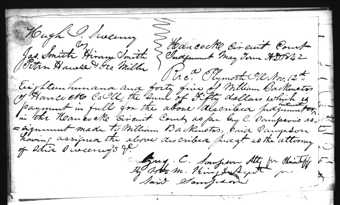 Hugh Q Sweeney
vs
Jas Smith Hiram Smith
Peter Hawes & Geo Miller
Hancock Circuit Court
Judgment May Term AD 1842
Rec'd Plymouth Ill Nov. 12th
Eighteen hundred and forty five of William Backenstos
of Hancock Co Ill. the Sum of Fifty dollars which is
payment in full on the above described judgment
in the Hancock Circuit Court, as per by C. Sampson's as-
signment made to William Backenstos, said Sampson
having assigned the above described judgt as the attorney
of said Sweeney's &c.
C. Sampson Atty for Plaintiff
By M. King Agent for
Said Sampson